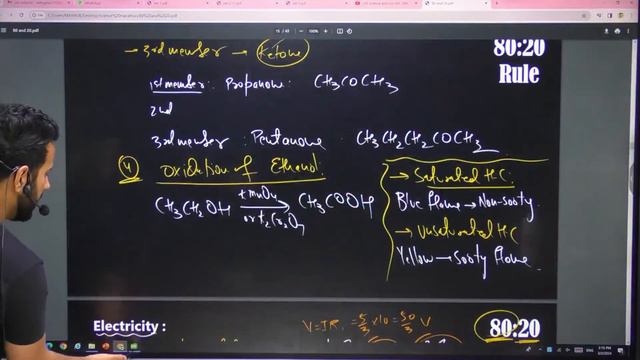 B0 and 20.pdf
→ 3rd member → Ketone
80:20
Rule
1st member : Propanone : CH3COCH3
2nd
3rd member : Pentanone : CH3CH2CH2COCH3
4 Oxidation of Ethanol
CH3CH2OH KMnO4 or K2Cr2O7 → CH3COOH
→ Saturated H.C.
Blue flame → Non-sooty
→ Unsaturated H.C
Yellow → Sooty flame
Electricity :
V = IR = 5/3 × 10 = 50/3 V
80:20